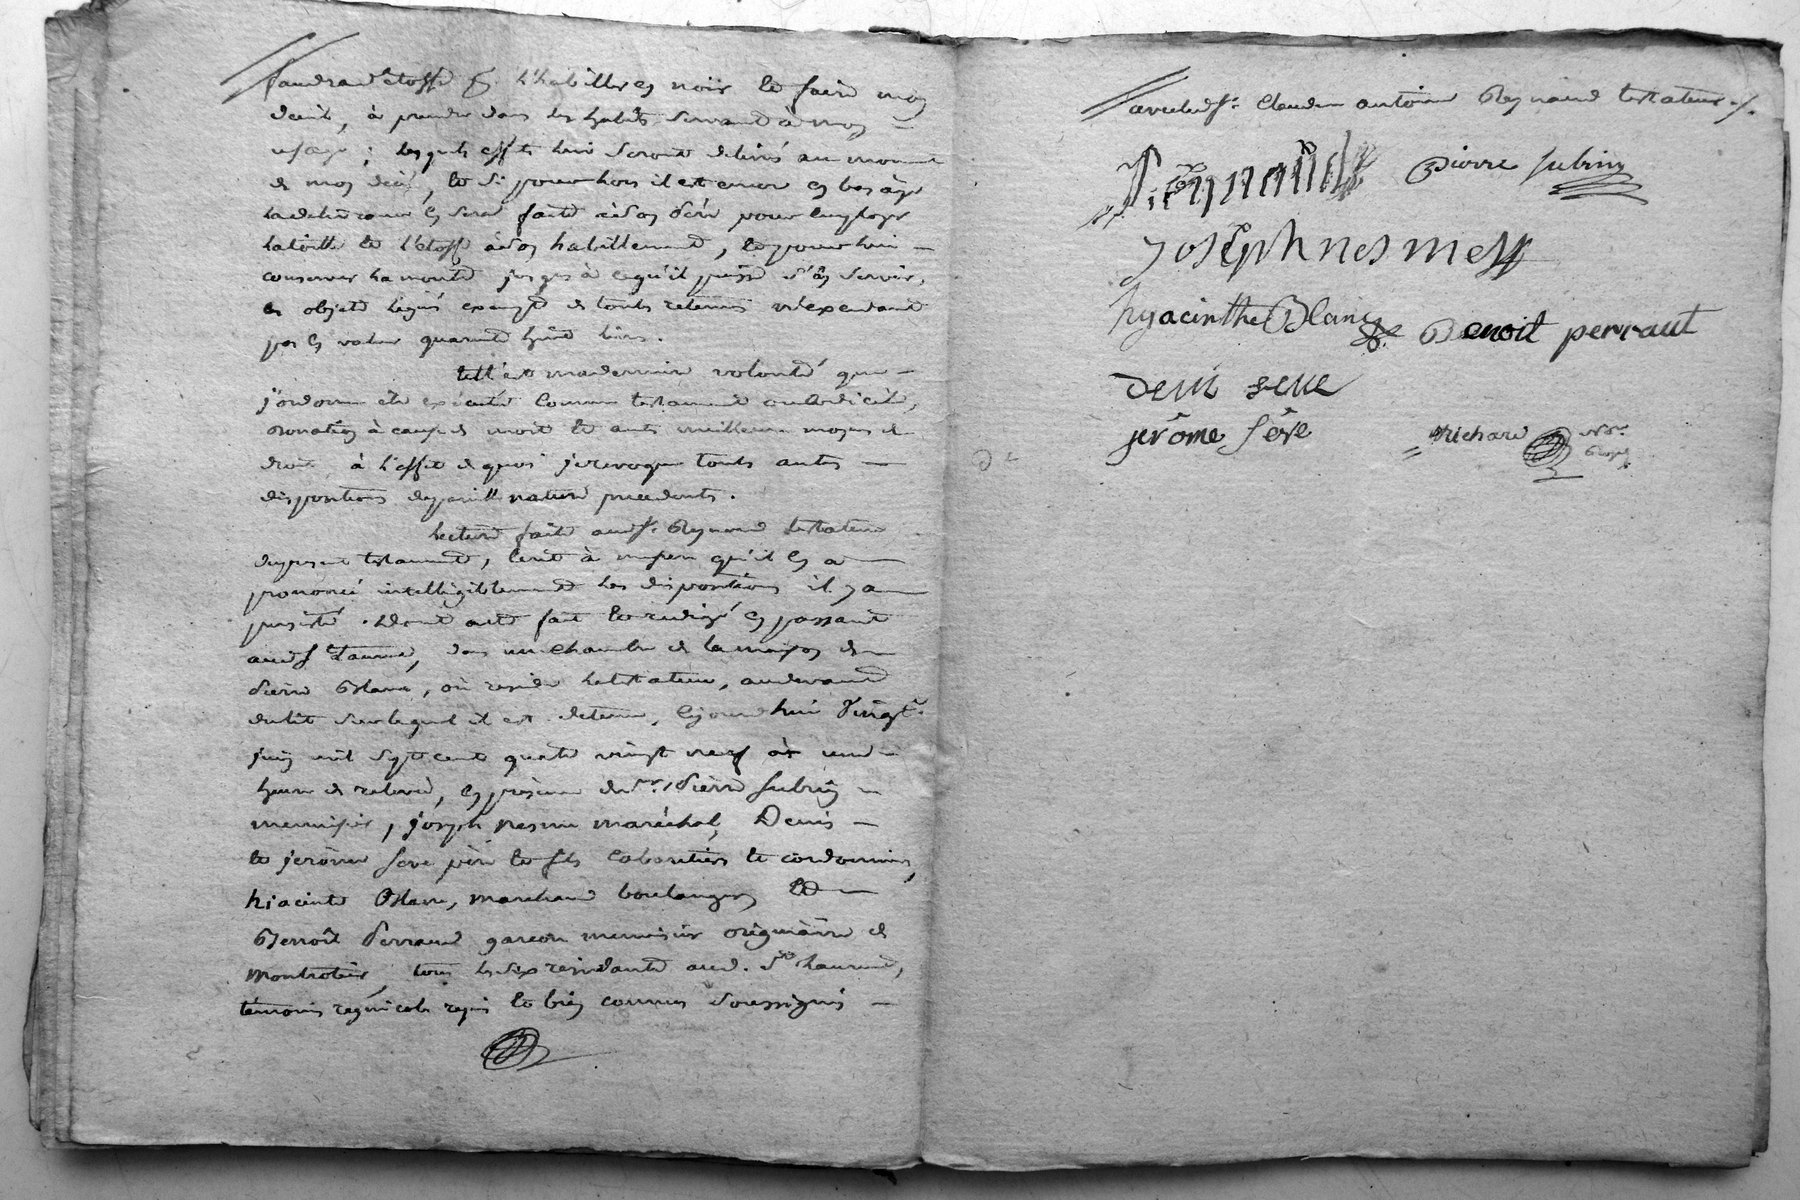 faudra d'étoffe p. l'habiller en noir et faire mon
deuil, à prendre dans les habits servant à mon
usage ; lesquels effets lui seront delivrés au moment
de mon décés, et si pour lors il est encor en bas age
la delivrance en sera faite à son père pour employer
la toille et l'étoffe à son habillement, et pour lui
conserver la montre jusques à ce qu'il puisse s'en servir,
ces objets legués exempts de touts retenus n'éxcendant
pas en valeur quarente huit livres.
telle est ma derniere volonté que
j'ordonne etre exécuté comme testament ou codicile,
donation à cause de mort et autre meilleur moyen de
droit à l'effet de quoi je revoque touts autres
dispositions de pareille nature precedents.
Lecture faite aud sr. Reynaud testateur
du present testament, écrit à mesure qu'il en a
prononcé intelligiblement les dispositions il y a
persisté. Dont acte fait et redigé en passant
aud St Laurent, dans une chambre de la maison de
Pierre Blanc, où reside le testateur, au devant
du lit sur lequel il est detenu, ce jourd'hui vingt
juin mil sept cent quatre vingt neuf à une
heure de relevée, en presence de sr. Pierre Subrin
menuisier, joseph nesme maréchal, Denis
et jerôme seve père et fils cabaretiers et cordonniers,
hiacinte Blanc, marchand boulanger, Et
Benoît Perraud garcon menuisier originaire de
Montrotier, tous les six residants aud. St. Laurent,
témoins regnicoles requis et bien connus soussignés
avec led sr. Claude antoine Reynaud testateur ./.
Reynaud Pierre subrin
joseph nesme
hyacinthe Blanc Benoit perraut
deni seve
jerôme sève Richard Nore